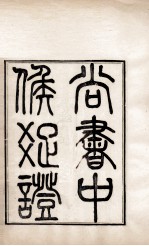 尚書中
候疏證